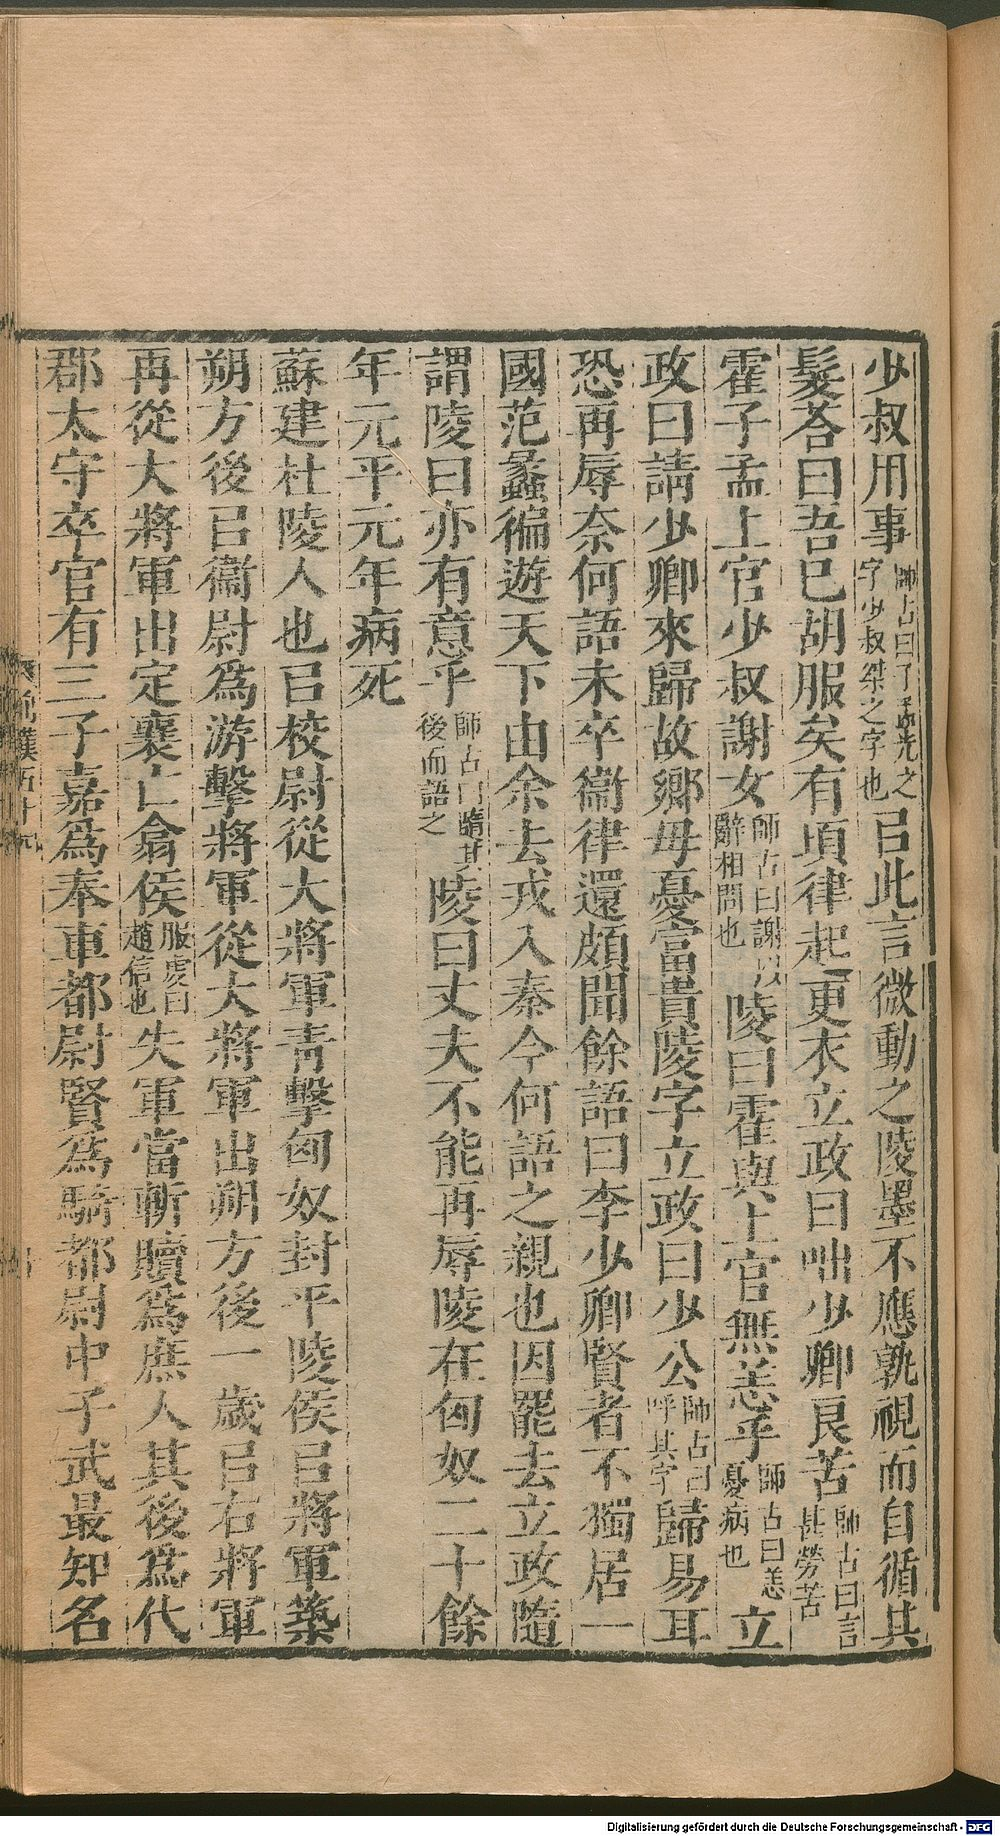 少叔用事師古曰子孟光之字少叔桀之字也㠯此言微動之陵墨不應孰視而自循其
髮荅曰吾已胡服矣有頃律起更衣立政曰咄少卿良苦師古曰言甚勞苦
霍子孟上官少叔謝女師古曰謝以辭相問也陵曰霍與上官無恙乎師古曰恙憂病也立
政曰請少卿來歸故鄉毋憂富貴陵字立政曰少公師古曰呼其字歸易耳
恐再辱奈何語未卒衞律還頗聞餘語曰李少卿賢者不獨居一
國范蠡徧遊天下由余去戎入秦今何語之親也因罷去立政隨
謂陵曰亦有意乎師古曰隨其後而語之陵曰丈夫不能再辱陵在匈奴二十餘
年元平元年病死
蘇建杜陵人也㠯校尉從大將軍青擊匈奴封平陵侯㠯將軍築
朔方後㠯衞尉爲游擊將軍從大將軍出朔方後一歲㠯右將軍
再從大將軍出定襄亡翕侯服虔曰趙信也失軍當斬贖爲庶人其後爲代
郡太守卒官有三子嘉爲奉車都尉賢爲騎都尉中子武最知名
前漢五十四
Digitalisierung gefördert durch die Deutsche Forschungsgemeinschaft - DFG